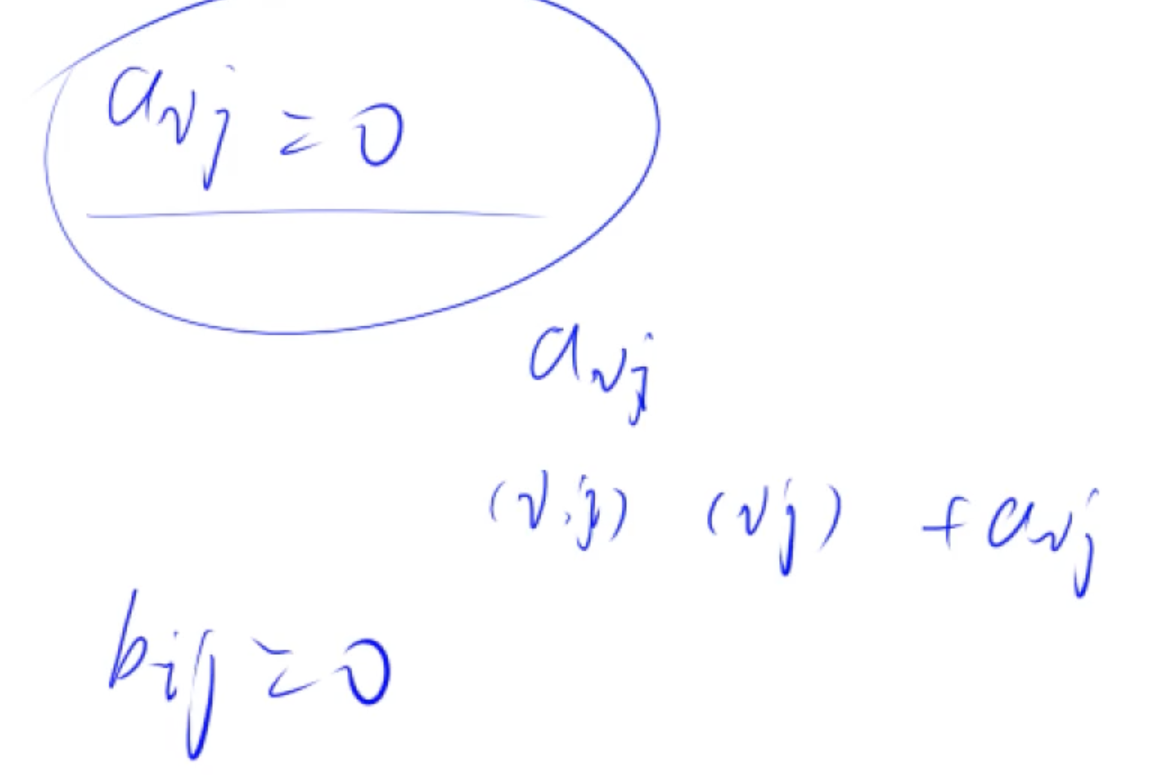 avj = 0
avj
(v,j) (vj) + avj
bij = 0